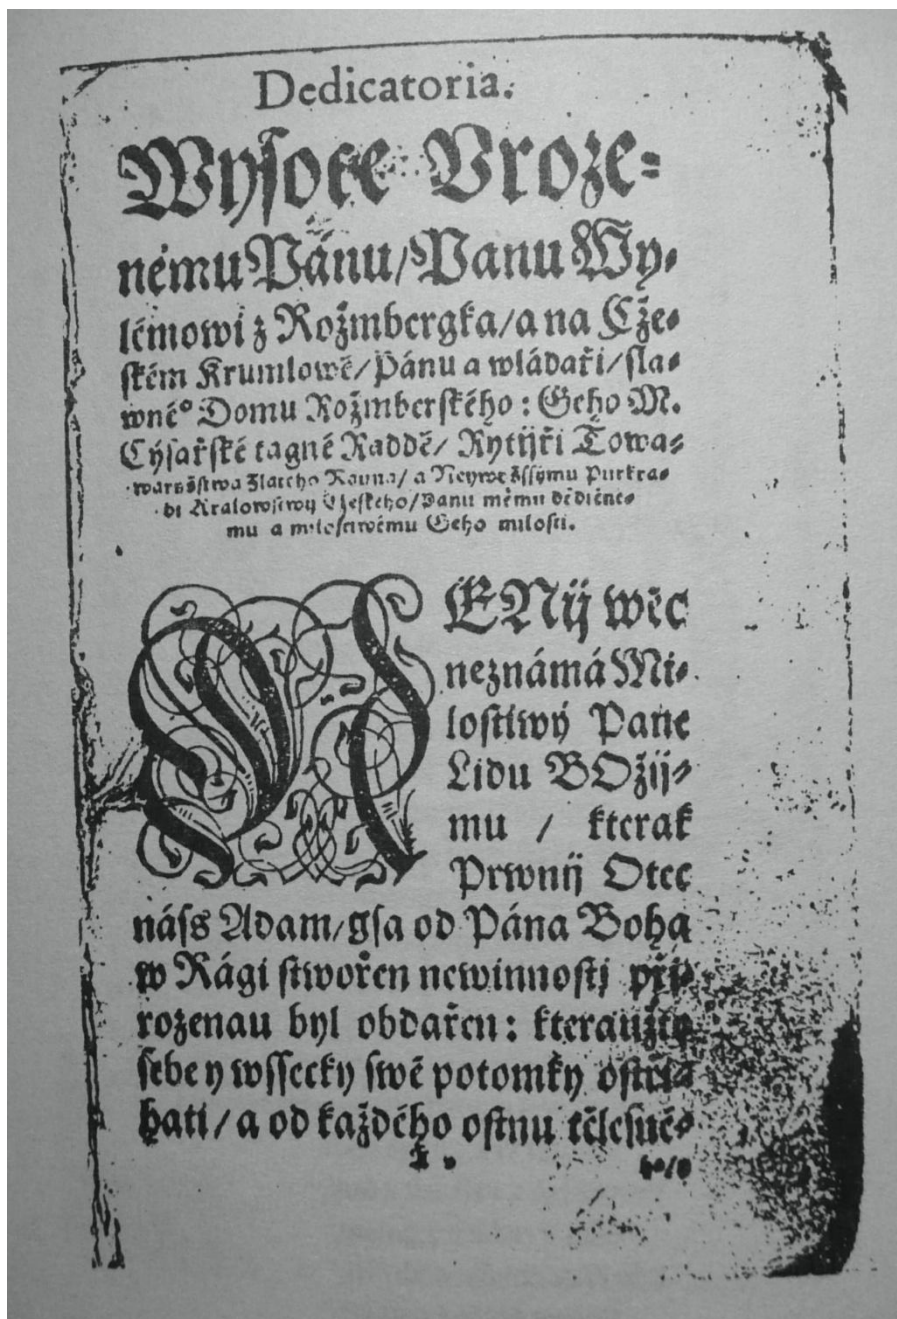 Dedicatoria.
Wysoce Vroze=
nému Pánu/Panu Wy=
lémowi z Rožmbergka/a na Cže=
ském Krumlowě/Pánu a wládaři/sla=
wnéº Domu Rožmberského: Geho M.
Cýsařské tagné Raddě/ Rytijři Towa=
warysstwa Zlatého Rauna/ a Neywyžssýmu Purkra=
bi Kralowstwij Cžeského/Panu mému dědične=
mu a milostiwému Geho milosti.
NENij wěc
neznámá Mi=
lostiwý Pane
Lidu BOžij=
mu / kterak
Prwnij Otec
náss Adam/gsa od Pána Boha
w Rági stwořen newinnostj při=
rozenau byl obdařen: kteraužto
sebe y wssecky swé potomky ostři=
hati/a od každého ostnu tělesné=
ho/a